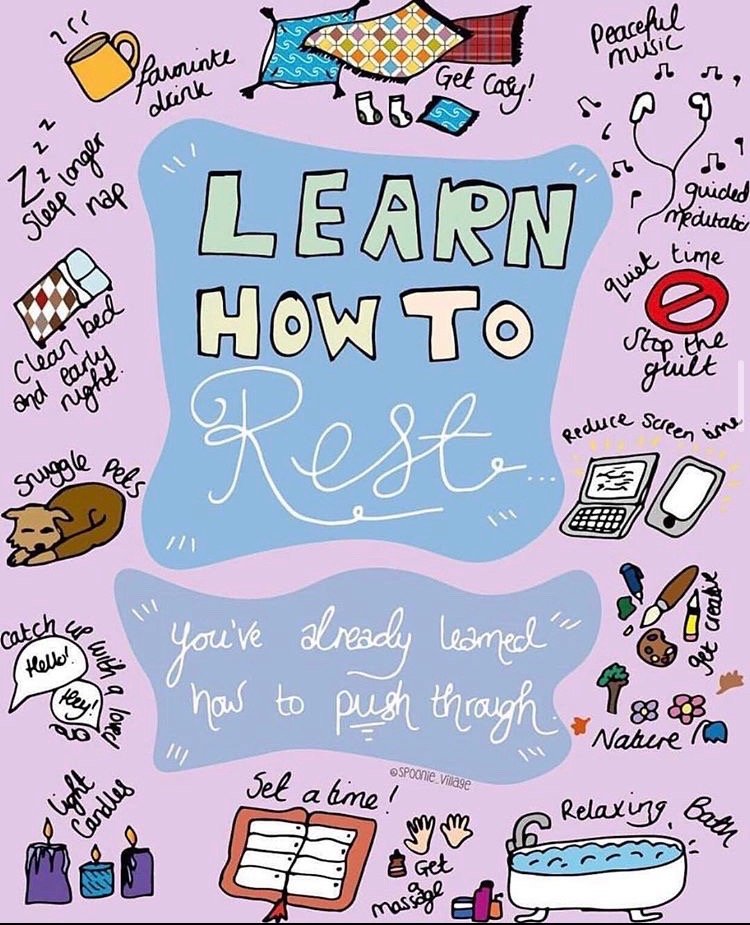 Favourite
drink
Get Cosy!
Peaceful
music
Zzzz
Sleep longer
nap
LEARN
HOW TO
Rest...
guided
meditation
quiet time
Stop the
guilt
Clean bed
and early
night.
Reduce Screen time
Snuggle Pets
get creative
you've already learned
how to push through.
catch up with a loved
Hello!
Hey!
Nature
@SPOONIE_VILLAGE
Light
Candles
Set a time!
Get
a
massage
Relaxing Bath